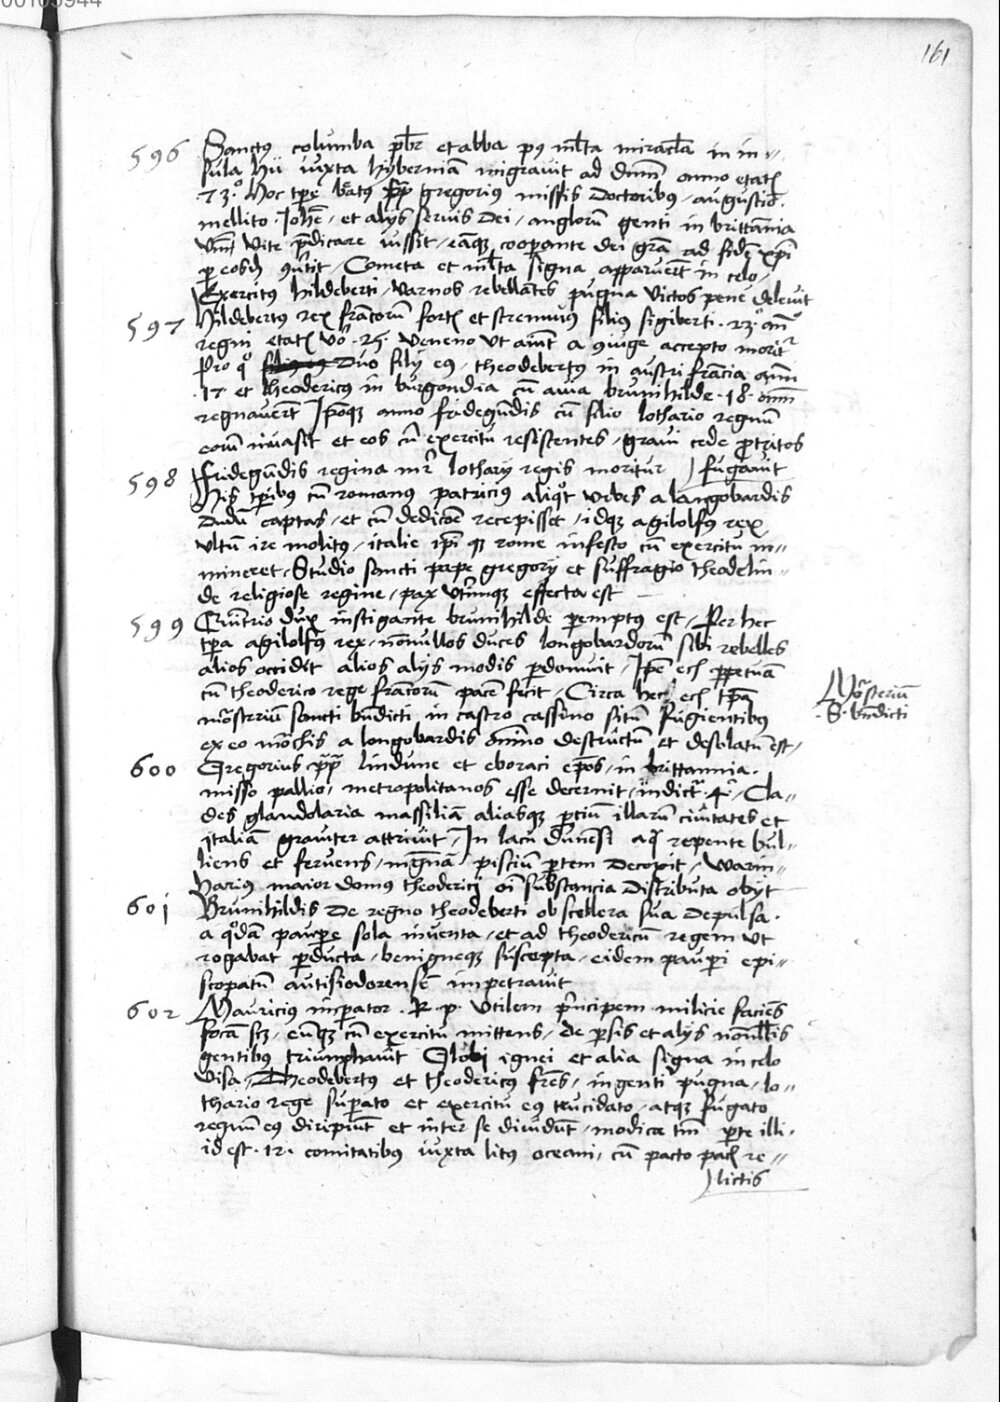 161
596 Sanctus columba pbr et abba p9 mlta miracla in in=
sula Hii iuxta hyberniā migravit ad dnm anno etatꝭ
·73·° Hoc tpe bat9 pp gregorius missis doctoribus / augustio.
mellito · Iohe / et alys servis Dei / anglorū genti in brittannia
vnīt vite p̄dicare iussit / eāqꝫ cooperante dei grā ad fidē xpi
p eosdē 9u̇tit / Cometa et mlta signa apparuert in celo /
Exercitus hildeberti / varnos rebellantes pugna victos pene delevit
597 Hildebertus rex francorū fortꝭ et strenuus filius sigiberti · 23° anō
regni etatꝭ vo · 25 · veneno vt aiūt a 9iuge accepto moritr
Pro q° Duo fily e9 / theodebertus in austrifrancia ann
·17· et theodericus in burgondia cū avia brunihilde · 18 · ann
regnavert Ipōqꝫ anno fridegūdis cū filio lothario regnū
eorū invasit et eos cū exercitu resistentes / gravi cede protritos
fugavit
598 Fridegūdis regina mr lothary regis moritur
His tpibus cū romanus patricius aliqt vrbes a langobardis
dudū captas / et cū dedicōe recepisset / idqꝫ agilolfus rex
vltū ire molitus / italie ipi qꝫ rome infesto cū exercitu in=
mineret / Studio sancti pape gregory et suffragio theodelin=
de religiose regine / pax vtrimqꝫ effecta est
599 Quintrio dux instigante brunihilde perempt9 est / Per hec
tpa agilolfus rex / nōnullos duces longobardorū sibi rebelles
alios occidit alios alys modis perdomuit / Ipe ecꝫ perpetuā
cū theoderico rege francorū pacē fecit / Circa hec ecꝫ tpa
mōsteriū sancti bndicti in castro cassino sitū fugientibus
ex eo mōchis a longobardis omīno destructū et desolatū est /
Mōsteriū
·S· bndicti
600 Gregorius pp lindune et eboraci epos / in brittannia.
misso pallio / metropolitanos esse decernit / indictr · 4 · / Cla=
des glandolaria massiliā aliasqꝫ pciū illarū civitates et
italiā graviter attrivit / In lacu dunēsi aq̄ repente bul=
liens et fervens / magnā pisciū ptem decoxit / Warin=
harius maior domus theoderici oī substancia distributa obyt
601 Brunihildis de regno theodeberti ob scellera sua depulsa.
a qdā paupe sola inventa / et ad theodericū regem vt
rogabat pducta / benigneqꝫ suscepta / eidem paupi epi=
scopatū autisiodorensē impetravit
602 Mauricius inpator · R · p · vtilem pncipem milicie faciēs
focā scꝫ / euqꝫ cū exercitu mittens / de psis et alys nōnllis
gentibus triumphavit Globi ignei et alia signa in celo
visa / Theodebertus et theodericus fres / ingenti pugna / lo=
thario rege supato et exercitu e9 trucidato / atqꝫ fugato
regnū e9 diripiūt et inter se dividūt / modica tm pte illi.
id est · 12 · comitatibus iuxta litus oceani / cū pacto pacꝭ re=
lictis